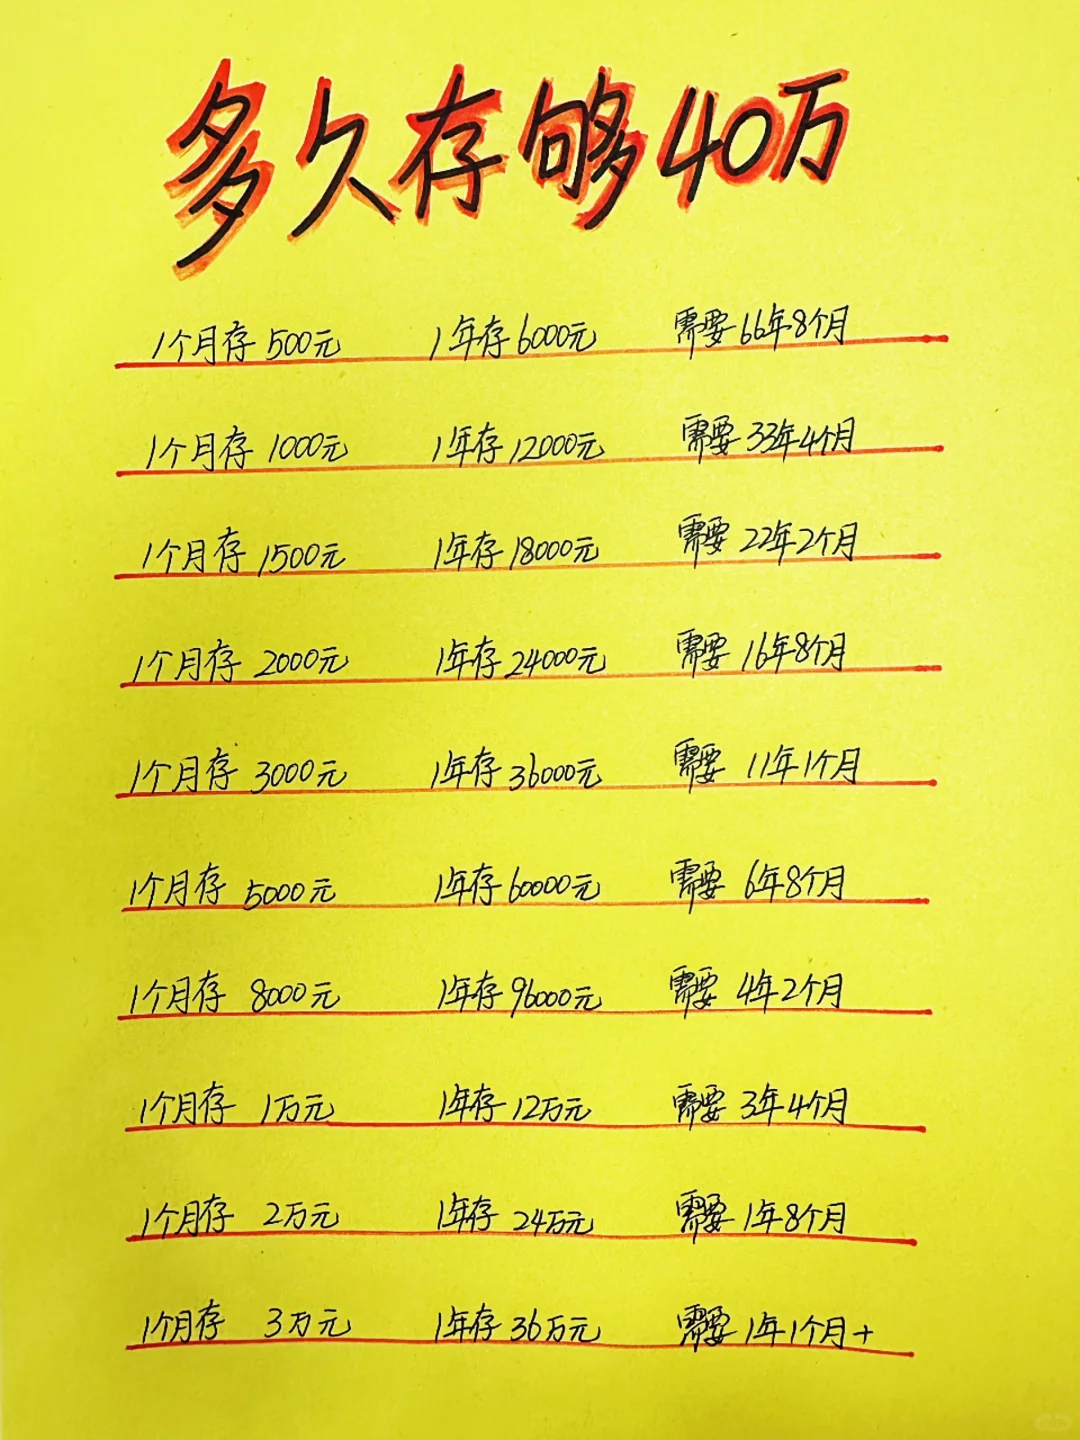 多久存够40万
1个月存 500元 1年存 6000元 需要 66年8个月
1个月存 1000元 1年存 12000元 需要 33年4个月
1个月存 1500元 1年存 18000元 需要 22年2个月
1个月存 2000元 1年存 24000元 需要 16年8个月
1个月存 3000元 1年存 36000元 需要 11年1个月
1个月存 5000元 1年存 60000元 需要 6年8个月
1个月存 8000元 1年存 96000元 需要 4年2个月
1个月存 1万元 1年存 12万元 需要 3年4个月
1个月存 2万元 1年存 24万元 需要 1年8个月
1个月存 3万元 1年存 36万元 需要 1年1个月+